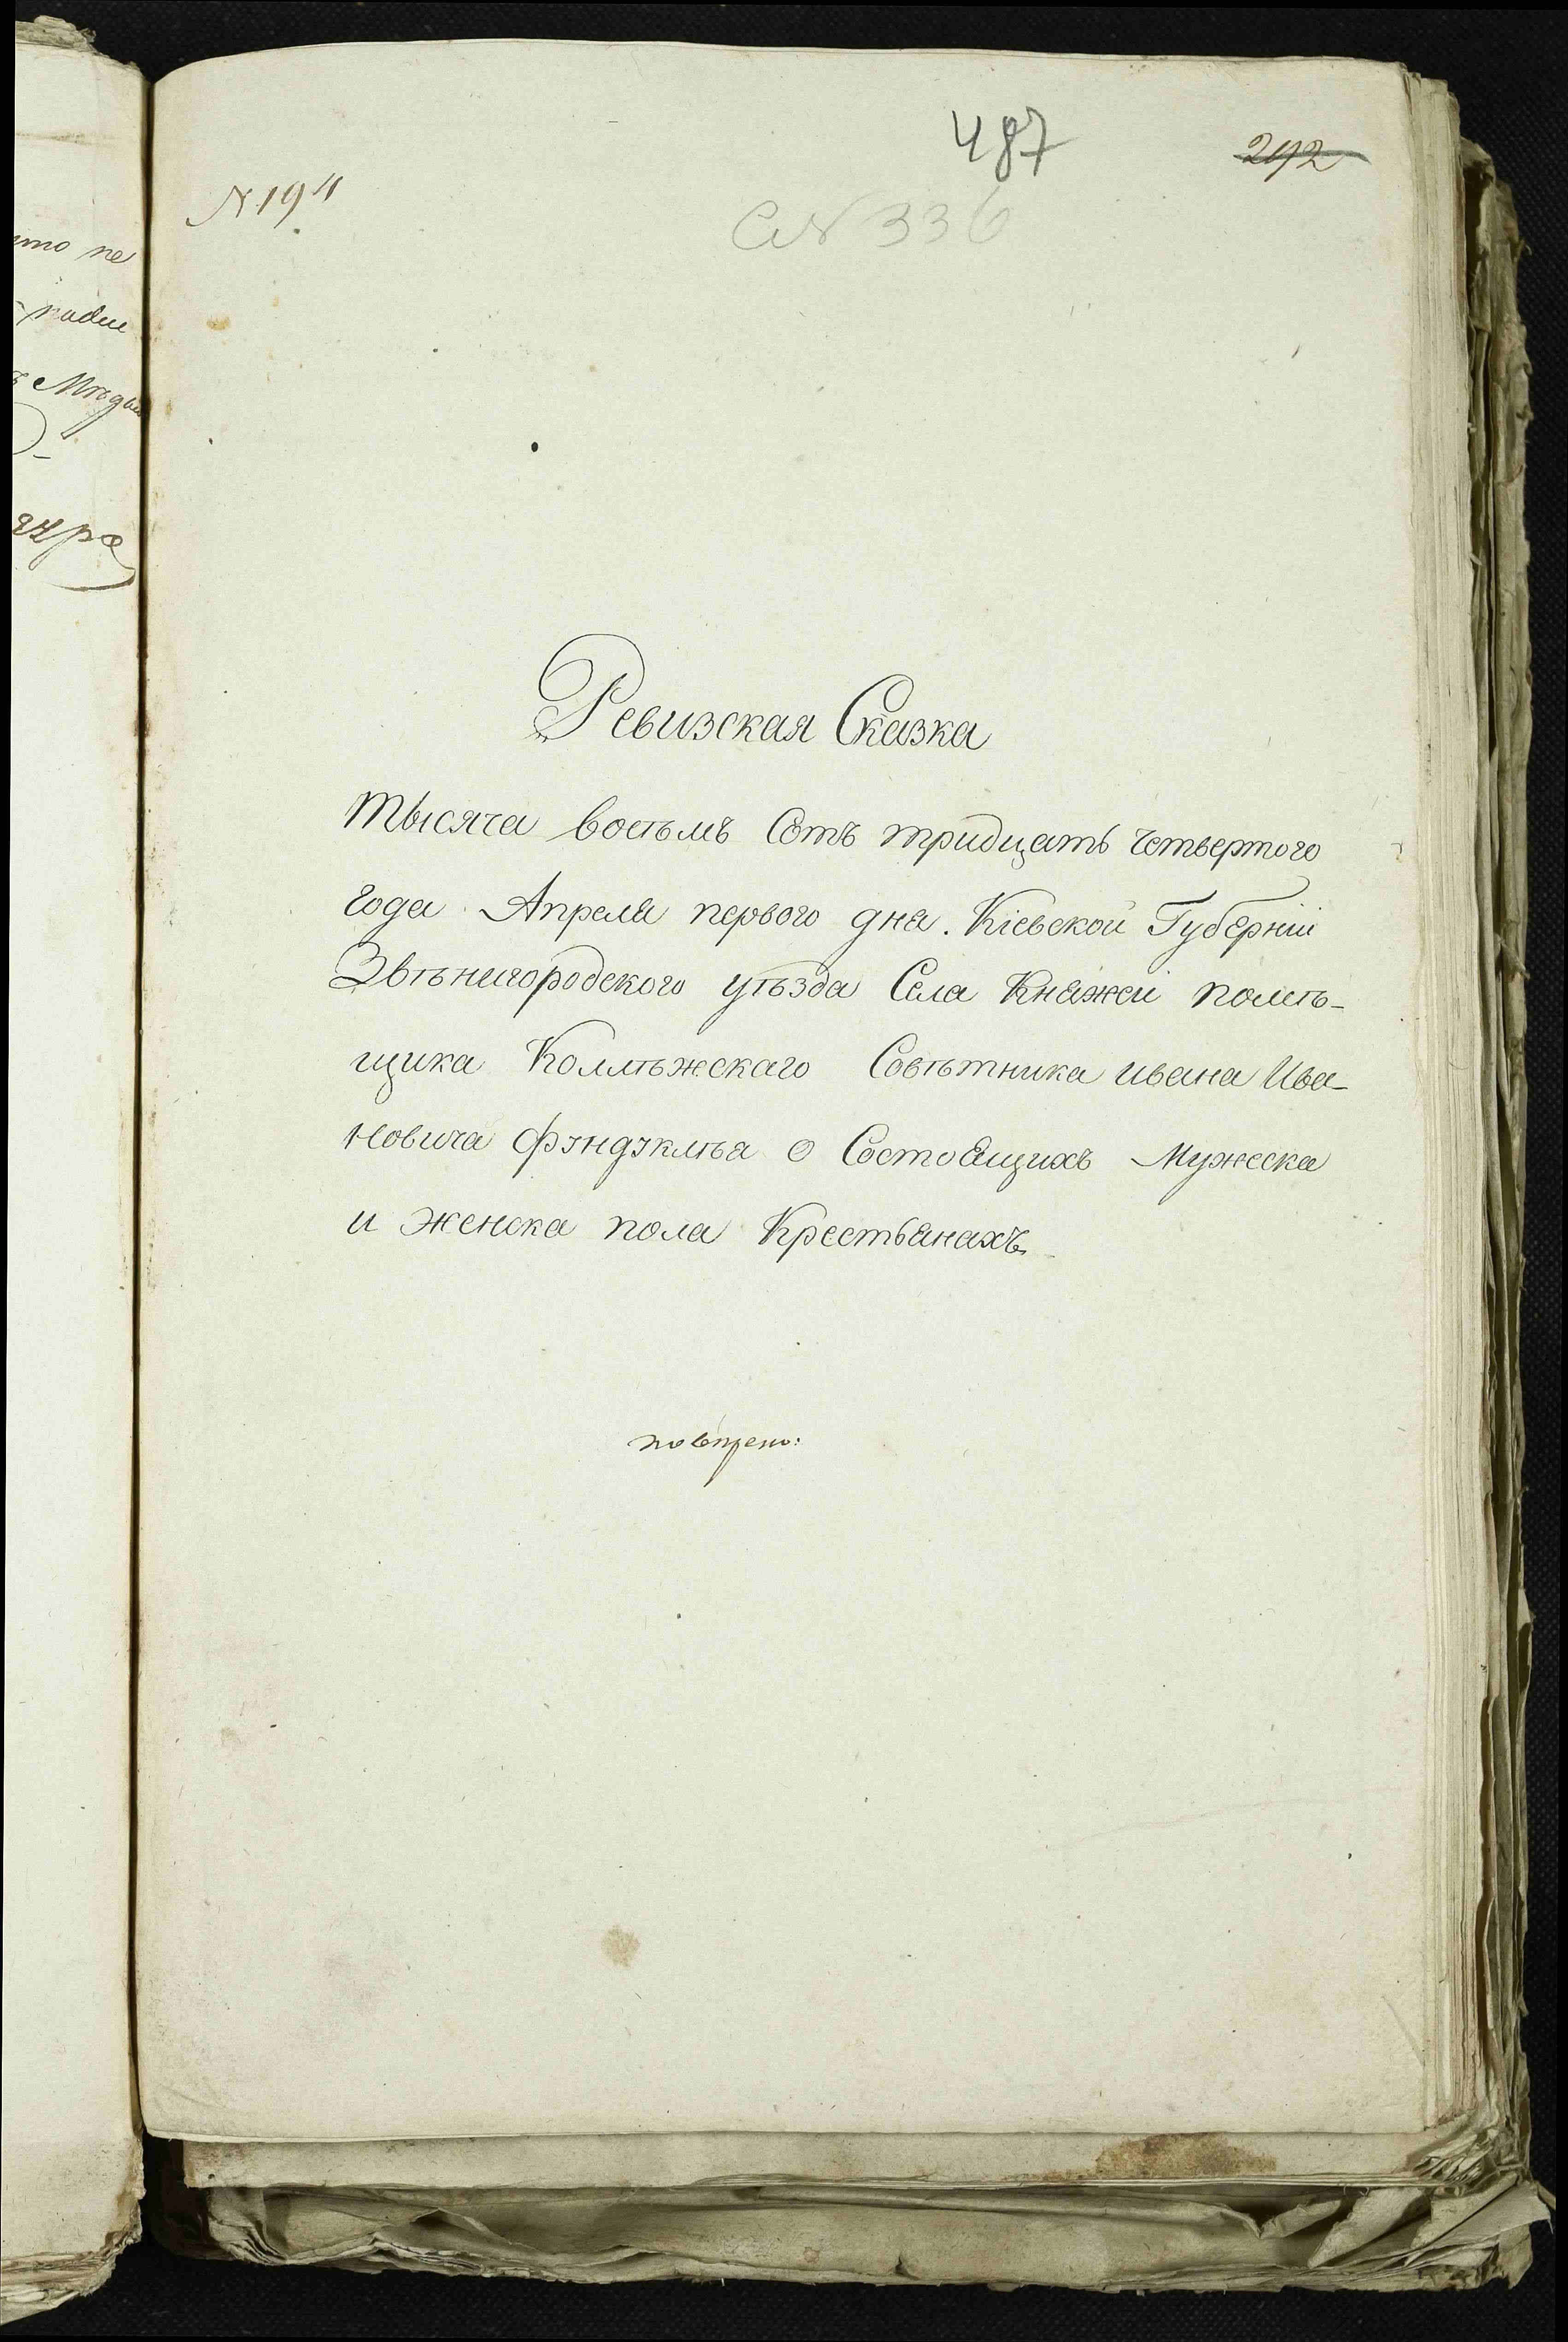 487
292
N 194
CN 336
Ревизская Сказка
Тысяча восѣмъ Сотъ тридцать четвертого
года Апреля первого дня. Кіевской Губерніи
Звѣнигородского уѣзда Села Княжей помѣ-
щика Коллѣжскаго Совѣтника ивана Ива-
новича Фундуклѣя о Состоящихъ Мужеска
и женска пола Крестьянахъ
повѣрено: